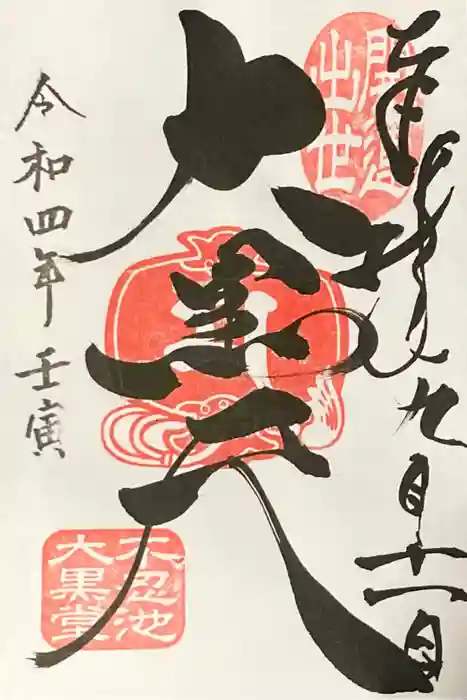 奉拝
九月十一日
開運
出世
大黒天
令和四年 壬寅
不忍池
大黒堂